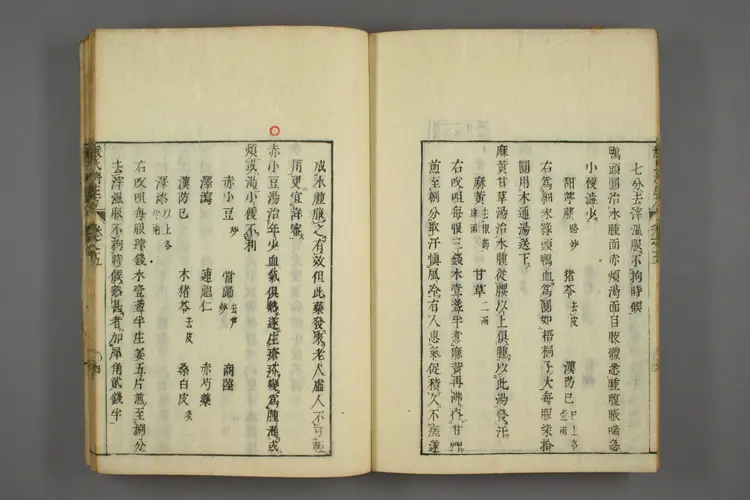 七分去滓溫服不拘時候
鴨頭圓治水腫面赤煩渴面目肢體悉腫腹脹喘急
小便澁少
甜葶藶略炒 猪苓去皮 漢防已已上各壹兩
右為細末綠頭鴨血為圓如梧桐子大每服柒拾
圓用木通湯送下
麻黃甘草湯治水腫從腰以上俱腫以此湯發汗
麻黃去根節肆兩 甘草二兩
右㕮咀每服三錢水壹盞半煮麻黃再沸內甘草
煎至捌分取汗愼風冷有人患氣促積久不瘥遂
成水腫服之有效但此藥發表老人虛人不可
用更宜詳審
赤小豆湯治年少血氣俱熱遂生瘡疥變為腫滿或
煩或渴小便不利
赤小豆炒 當歸去蘆炒 商陸
澤瀉 連翹仁 赤芍藥
漢防已 木猪苓去皮 桑白皮炙
澤漆以上各半兩
右㕮咀每服肆錢水壹盞半生姜五片煎至捌分
去滓溫服不拘時候熱甚者加犀角貳錢半